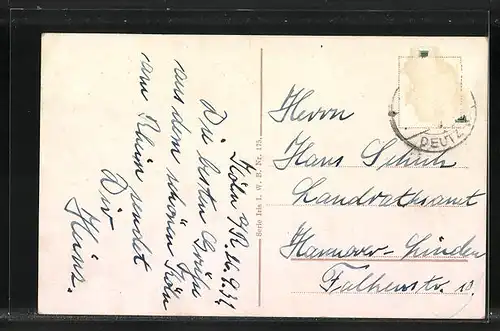 Köln a/R. 16.9.31
Die besten Grüße
aus dem schönen Köln
am Rhein sendet
Dir
Heinz.
Serie Iris I. W. B. Nr. 115.
DEUTZ
Herrn
Hans Schulz
Landratsamt
Hannover-Linden
Falkenstr. 10.